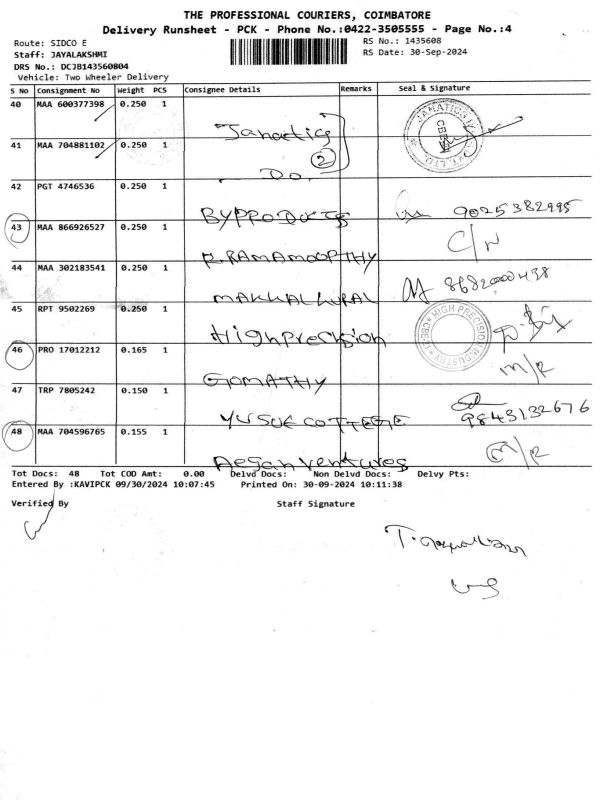 THE PROFESSIONAL COURIERS, COIMBATORE
Delivery Runsheet - PCK - Phone No.:0422-3505555 - Page No.:4
Route: SIDCO E RS No.: 1435608
Staff: JAYALAKSHMI RS Date: 30-Sep-2024
DRS No.: DCJB143560804
Vehicle: Two Wheeler Delivery
S No Consignment No Weight PCS Consignee Details Remarks Seal & Signature
40 MAA 600377398 0.250 1 Janatics
41 MAA 704881102 0.250 1 Do. 2
42 PGT 4746536 0.250 1 BYPRODUCTS 9025382995
43 MAA 866926527 0.250 1 R.RAMAMOORTHY C/N
44 MAA 302183541 0.250 1 MAKKALKURAL 8682000438
45 RPT 9502269 0.250 1 High Precision HIGH PRECISION INDUSTRY
46 PRO 17012212 0.165 1 GOMATHY M/R
47 TRP 7805242 0.150 1 9843132676
48 MAA 704596765 0.155 1 Aegan Ventures M/R
Tot Docs: 48 Tot COD Amt: 0.00 Delvd Docs: Non Delvd Docs: Delvy Pts:
Entered By :KAVIPCK 09/30/2024 10:07:45 Printed On: 30-09-2024 10:11:38
Verified By Staff Signature